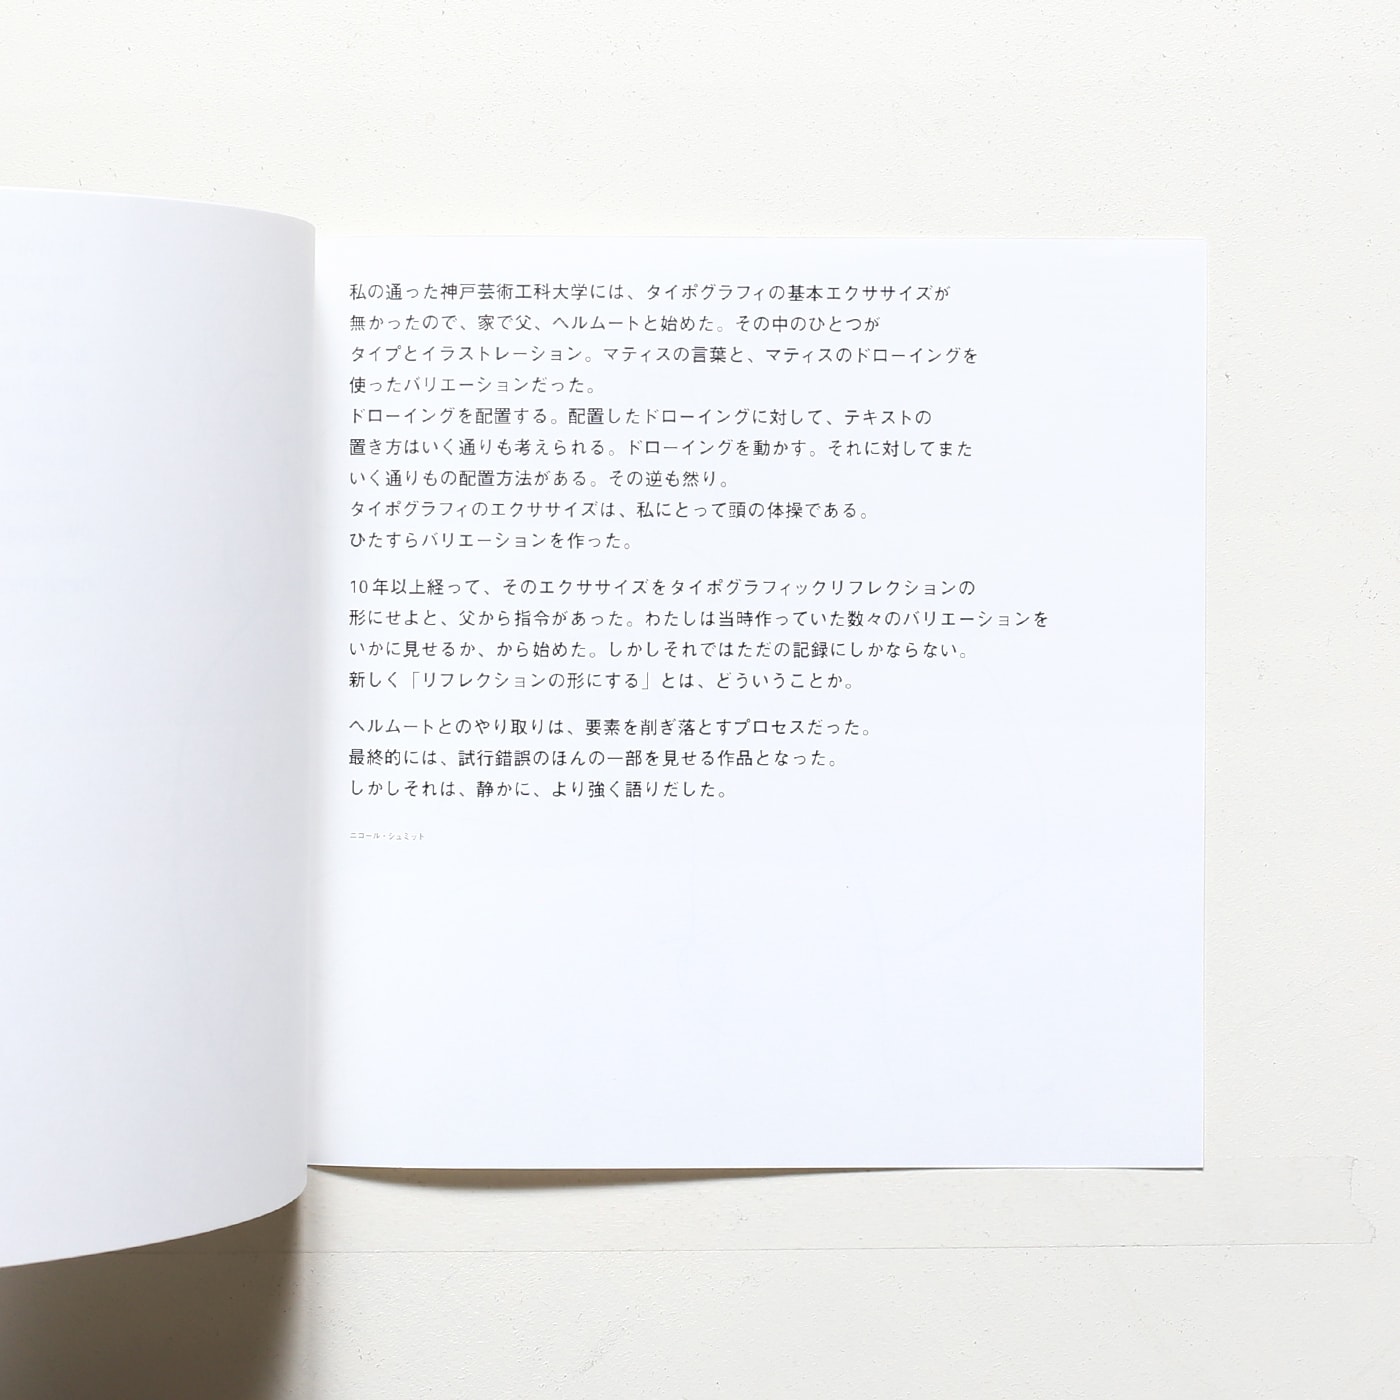 私の通った神戸芸術工科大学には、タイポグラフィの基本エクササイズが
無かったので、家で父、ヘルムートと始めた。その中のひとつが
タイプとイラストレーション。マティスの言葉と、マティスのドローイングを
使ったバリエーションだった。
ドローイングを配置する。配置したドローイングに対して、テキストの
置き方はいく通りも考えられる。ドローイングを動かす。それに対してまた
いく通りもの配置方法がある。その逆も然り。
タイポグラフィのエクササイズは、私にとって頭の体操である。
ひたすらバリエーションを作った。
10年以上経って、そのエクササイズをタイポグラフィックリフレクションの
形にせよと、父から指令があった。わたしは当時作っていた数々のバリエーションを
いかに見せるか、から始めた。しかしそれではただの記録にしかならない。
新しく「リフレクションの形にする」とは、どういうことか。
ヘルムートとのやり取りは、要素を削ぎ落とすプロセスだった。
最終的には、試行錯誤のほんの一部を見せる作品となった。
しかしそれは、静かに、より強く語りだした。
ニコール・シュミット